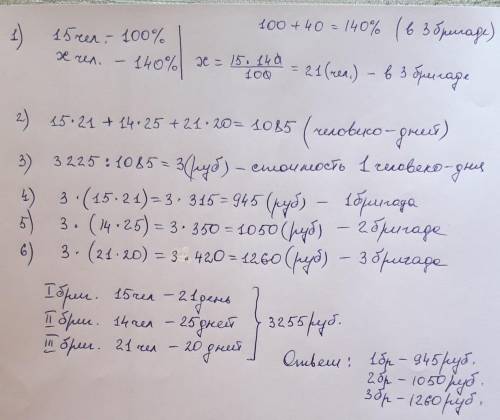 1) 15 чел. - 100% 100 + 40 = 140% (в 3 бригаде)
х чел. - 140% х = 15.140/100 = 21 (чел.) - в 3 бригаде
2) 15·21 + 14·25 + 21·20 = 1085 (человеко-дней)
3) 3225 : 1085 = 3 (руб) - стоимость 1 человеко-дня
4) 3·(15·21) = 3·315 = 945 (руб) - 1 бригада
5) 3·(14·25) = 3·350 = 1050 (руб) - 2 бригаде
6) 3·(21·20) = 3·420 = 1260 (руб) - 3 бригаде
I бриг. 15 чел - 21 день
II бриг. 14 чел - 25 дней
III бриг. 21 чел - 20 дней
3255 руб.
Ответ: 1 бр - 945 руб.
2 бр - 1050 руб.
3 бр - 1260 руб.